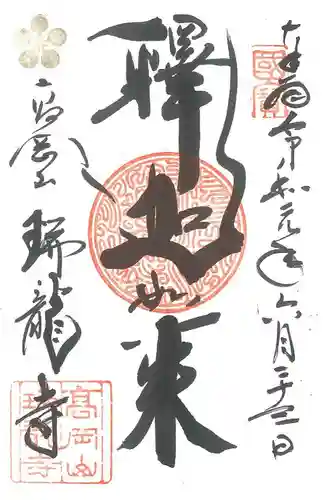 奉拝 令和元年六月二十三日
國寶
釋迦如来
高岡山 瑞龍寺
高岡山瑞龍寺